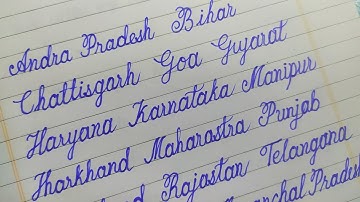 Andra Pradesh Bihar
Chattisgarh Goa Gujarat
Haryana Karnataka Manipur
Jharkhand Maharastra Punjab
Rajastan Telangana
Pradesh